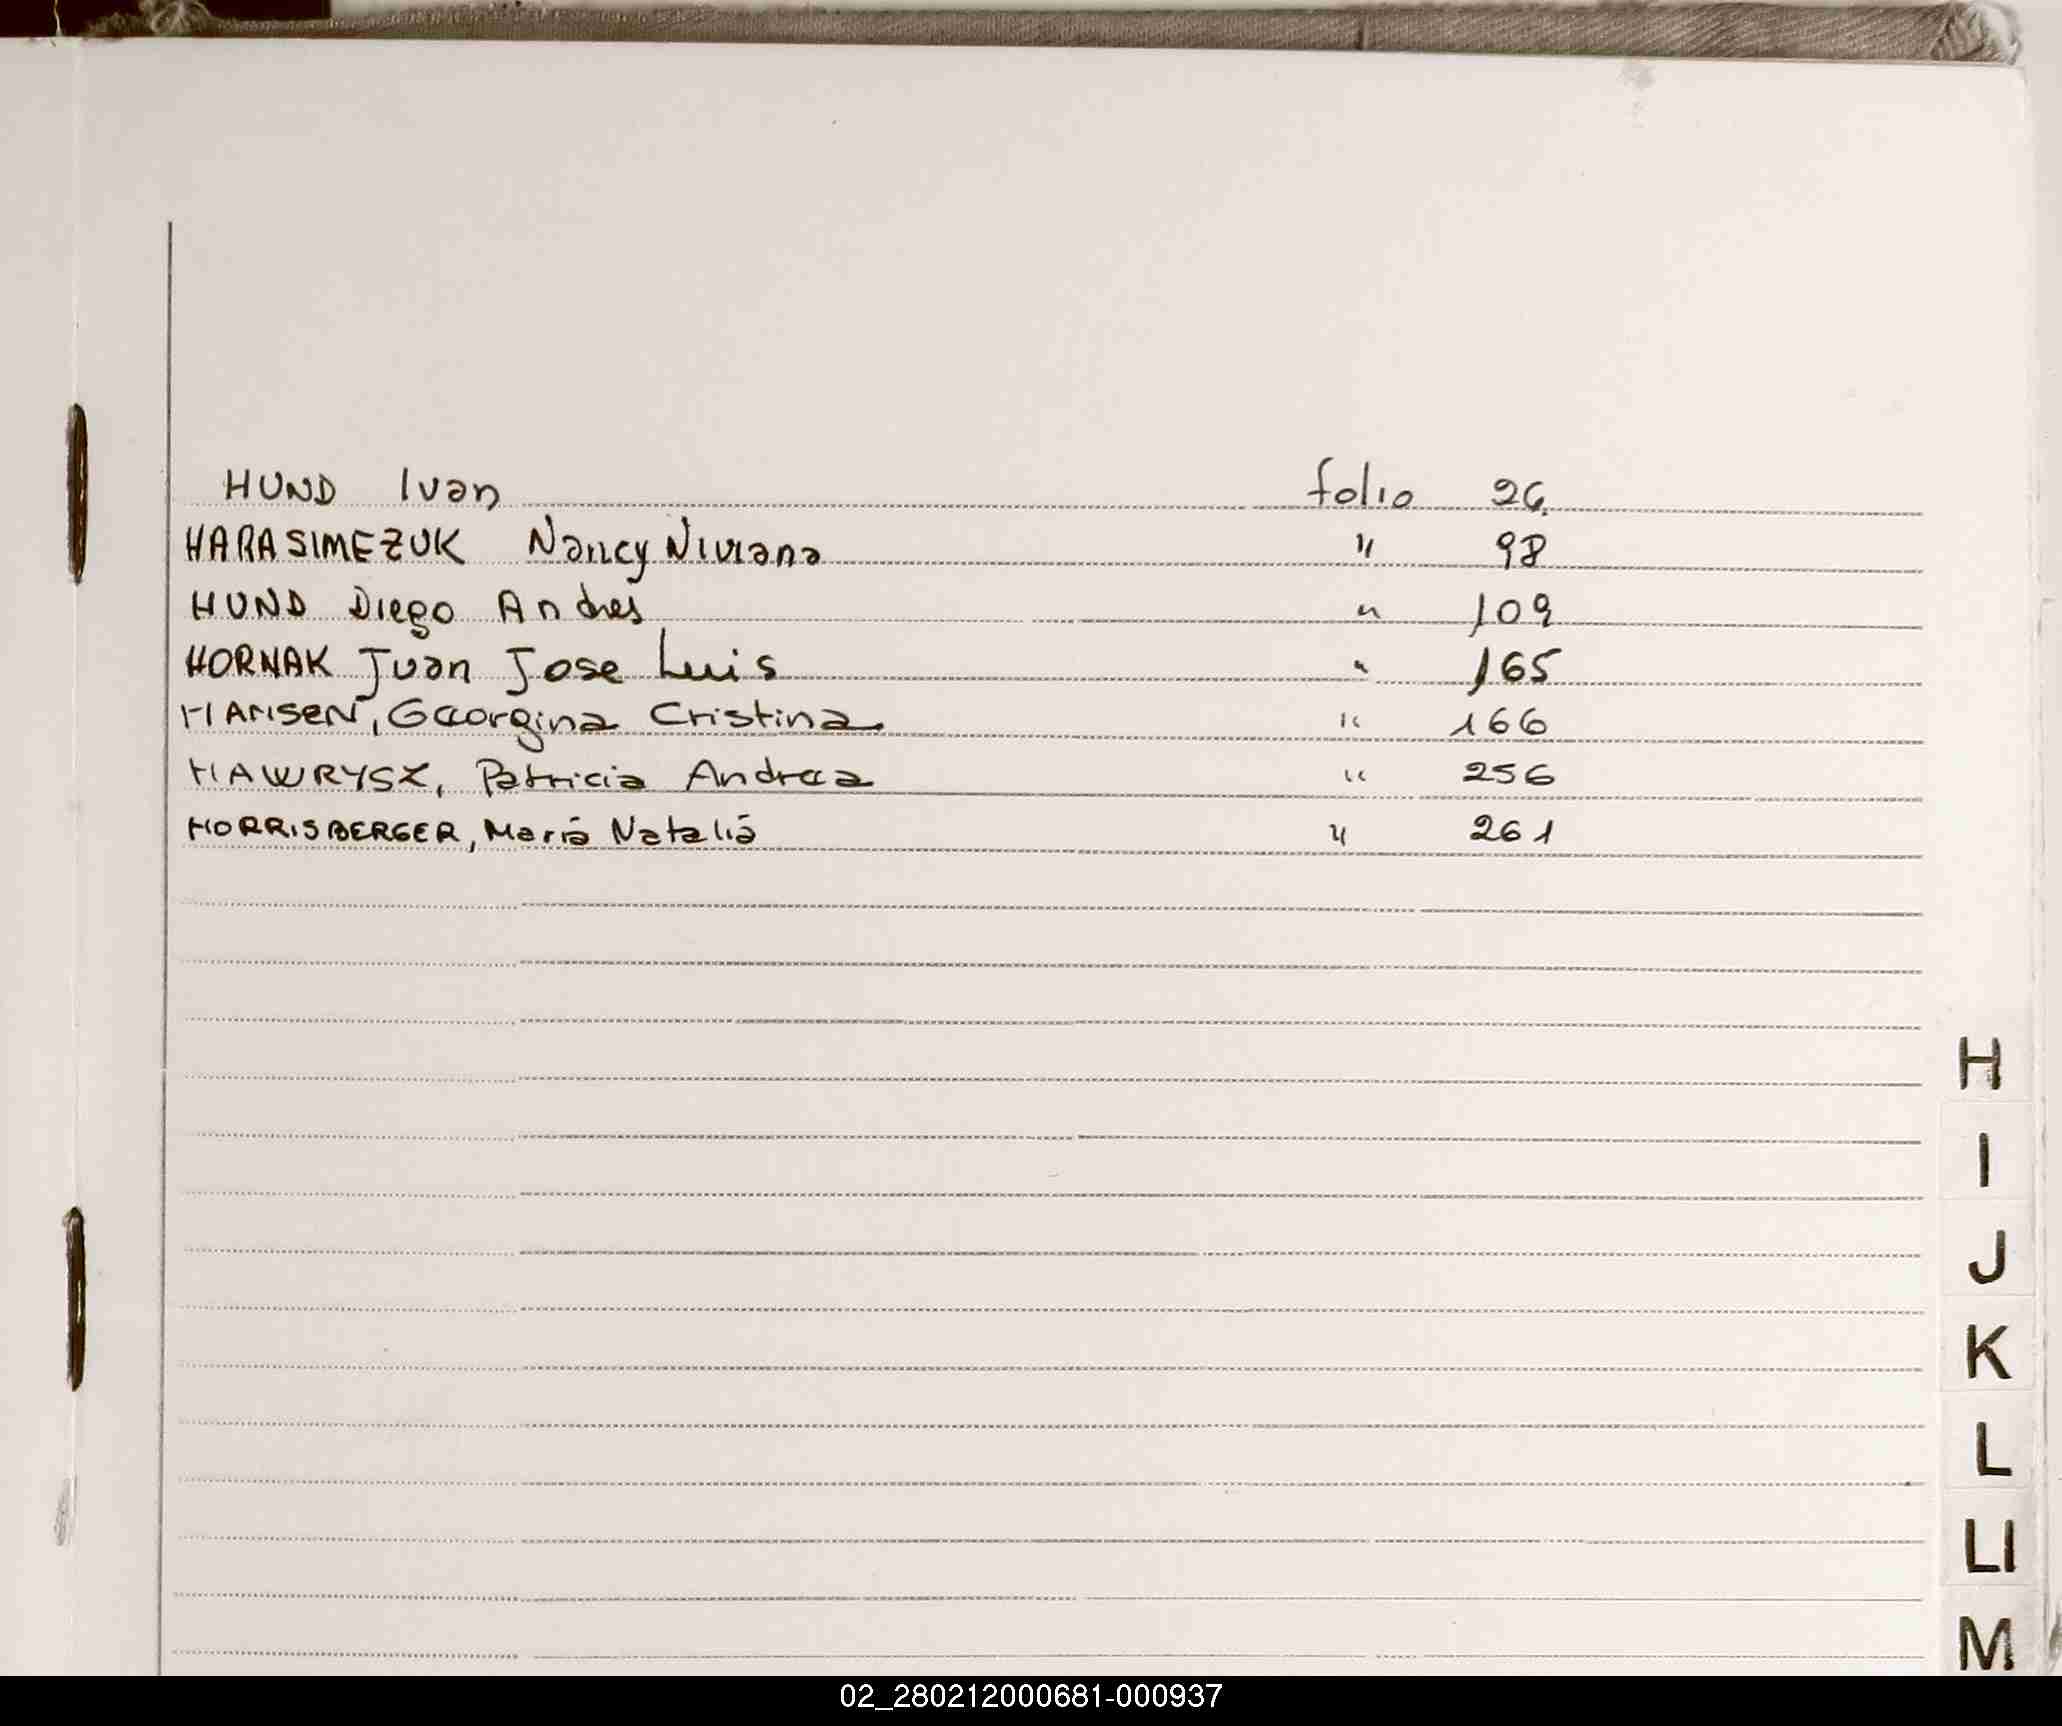 HUND Ivan folio 26.
HARASIMEZUK Nancy Niviana " 98
HUND Diego Andres " 109
HORNAK Juan Jose Luis " 165
HANSEN, Georgina Cristina " 166
HAWRYSZ, Patricia Andrea " 256
HORRISBERGER, María Natalia " 261
H
I
J
K
L
Ll
M
02_280212000681-000937